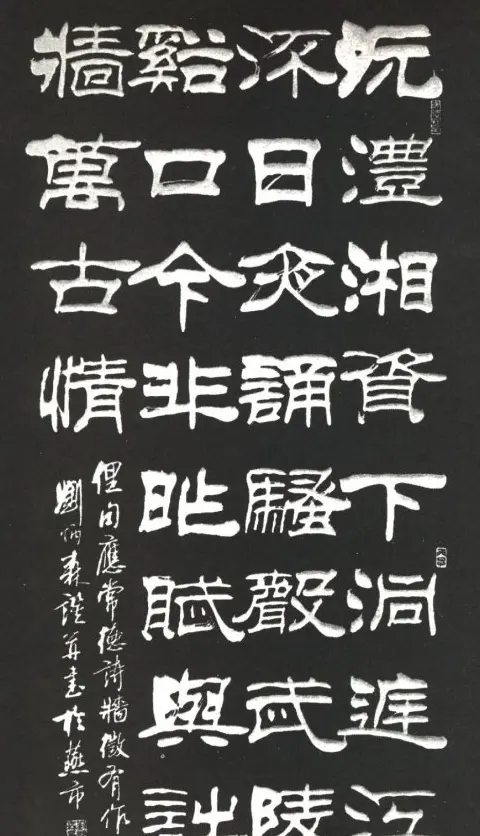 沅澧湘資下洞庭江
深日夜誦騷聲武陵
谿口今非昨賦與詩
牆萬古情
俚句應常德詩牆徵有作
劉炳森譔并書於燕市